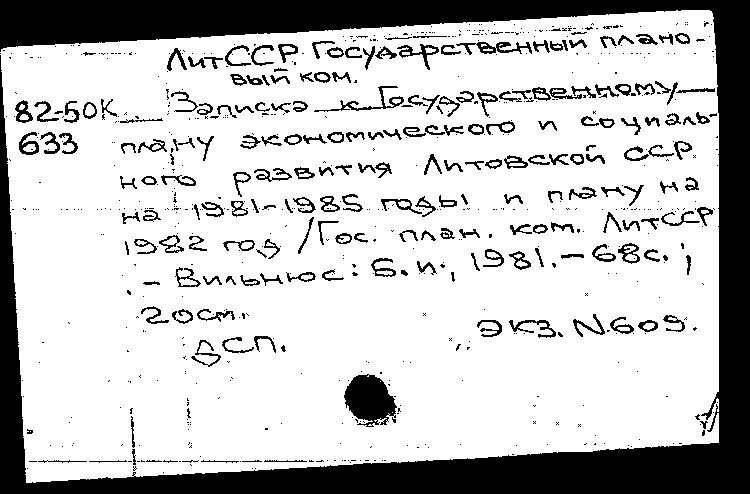 ЛитССР. Государственный плано-
вый ком.
82-50К Записка к Государственному
633 плану экономического и социаль-
ного развития Литовской ССР
на 1981-1985 годы и плану на
1982 год / Гос. план. ком. ЛитССР
. - Вильнюс: Б.и., 1981. - 68с. ;
20см.
ДСП. ЭКЗ. N.609.